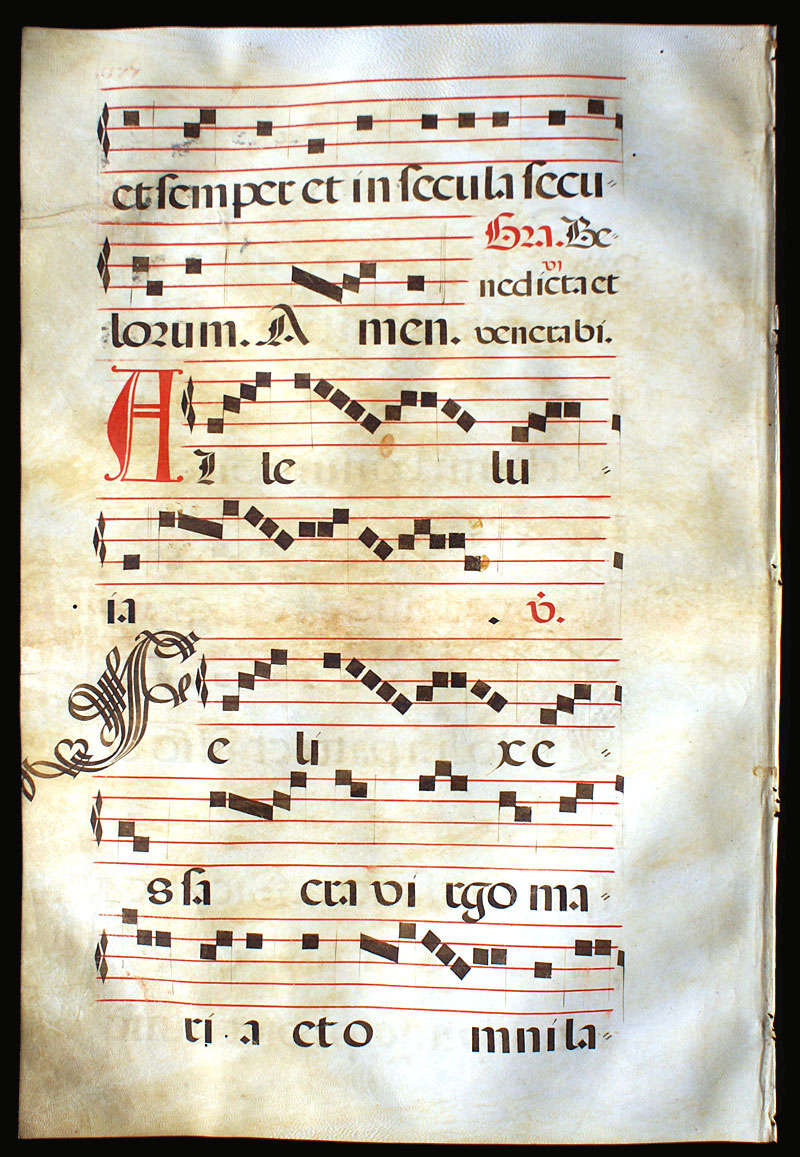 et semper et in secula secu-
Gra. Be-
lorum. A men.
nedicta et
venerabi.
Al le lu -
ia . v.
Fe li xe -
s sa cra vi rgo ma -
ri . a et o mni la -